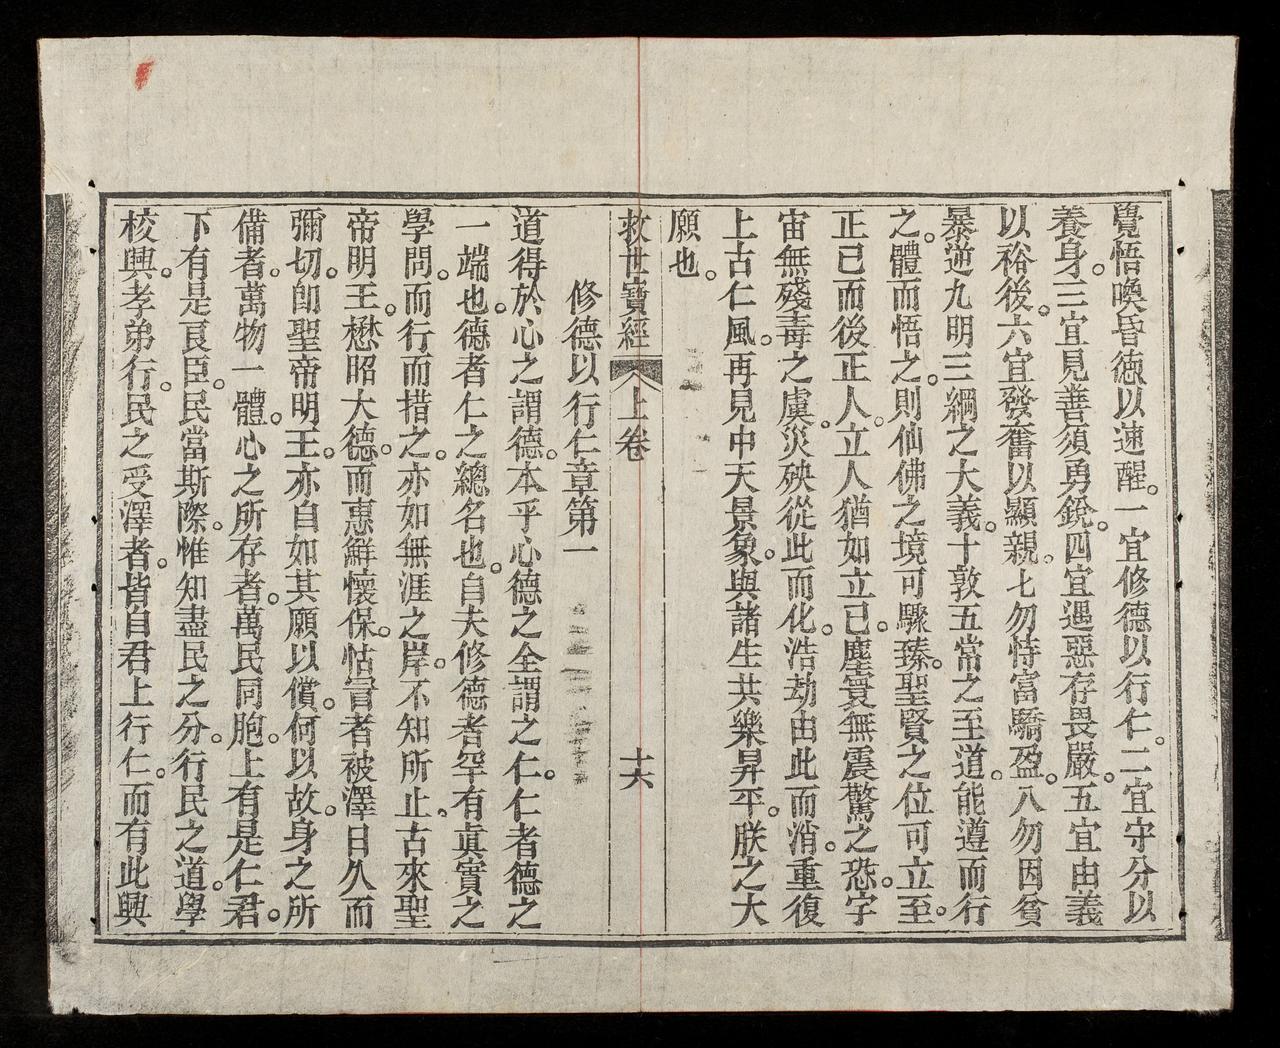 覺悟喚昏德以速醒。一宜修德以行仁。二宜守分以
養身。三宜見善須勇銳。四宜遇惡存畏嚴。五宜由義
以裕後。六宜發奮以顯親。七勿恃富驕盈。八勿因貧
暴逆九明三綱之大義。十敦五常之至道。能遵而行
之。體而悟之。則仙佛之境可驟臻。聖賢之位可立至。
正己而後正人。立人猶如立己。塵寰無震驚之恐。宇
宙無殘毒之虞。災殃從此而化。浩劫由此而消。重復
上古仁風。再見中天景象。與諸生共樂昇平。朕之大
願也。
救世寶經 上卷 十六
修德以行仁章第一
道得於心之謂德。本乎心德之全謂之仁。仁者德之
一端也。德者仁之總名也。自夫修德者罕有眞實之
學問。而行而措之。亦如無涯之岸。不知所止。古來聖
帝明王。懋昭大德。而惠鮮懷保。怙冒者被澤日久而
彌切。卽聖帝明王。亦自如其願以償。何以故。身之所
備者。萬物一體。心之所存者。萬民同胞。上有是仁君。
下有是良臣。民當斯際。惟知盡民之分。行民之道。學
校興。孝弟行。民之受澤者。皆自君上行仁。而有此興